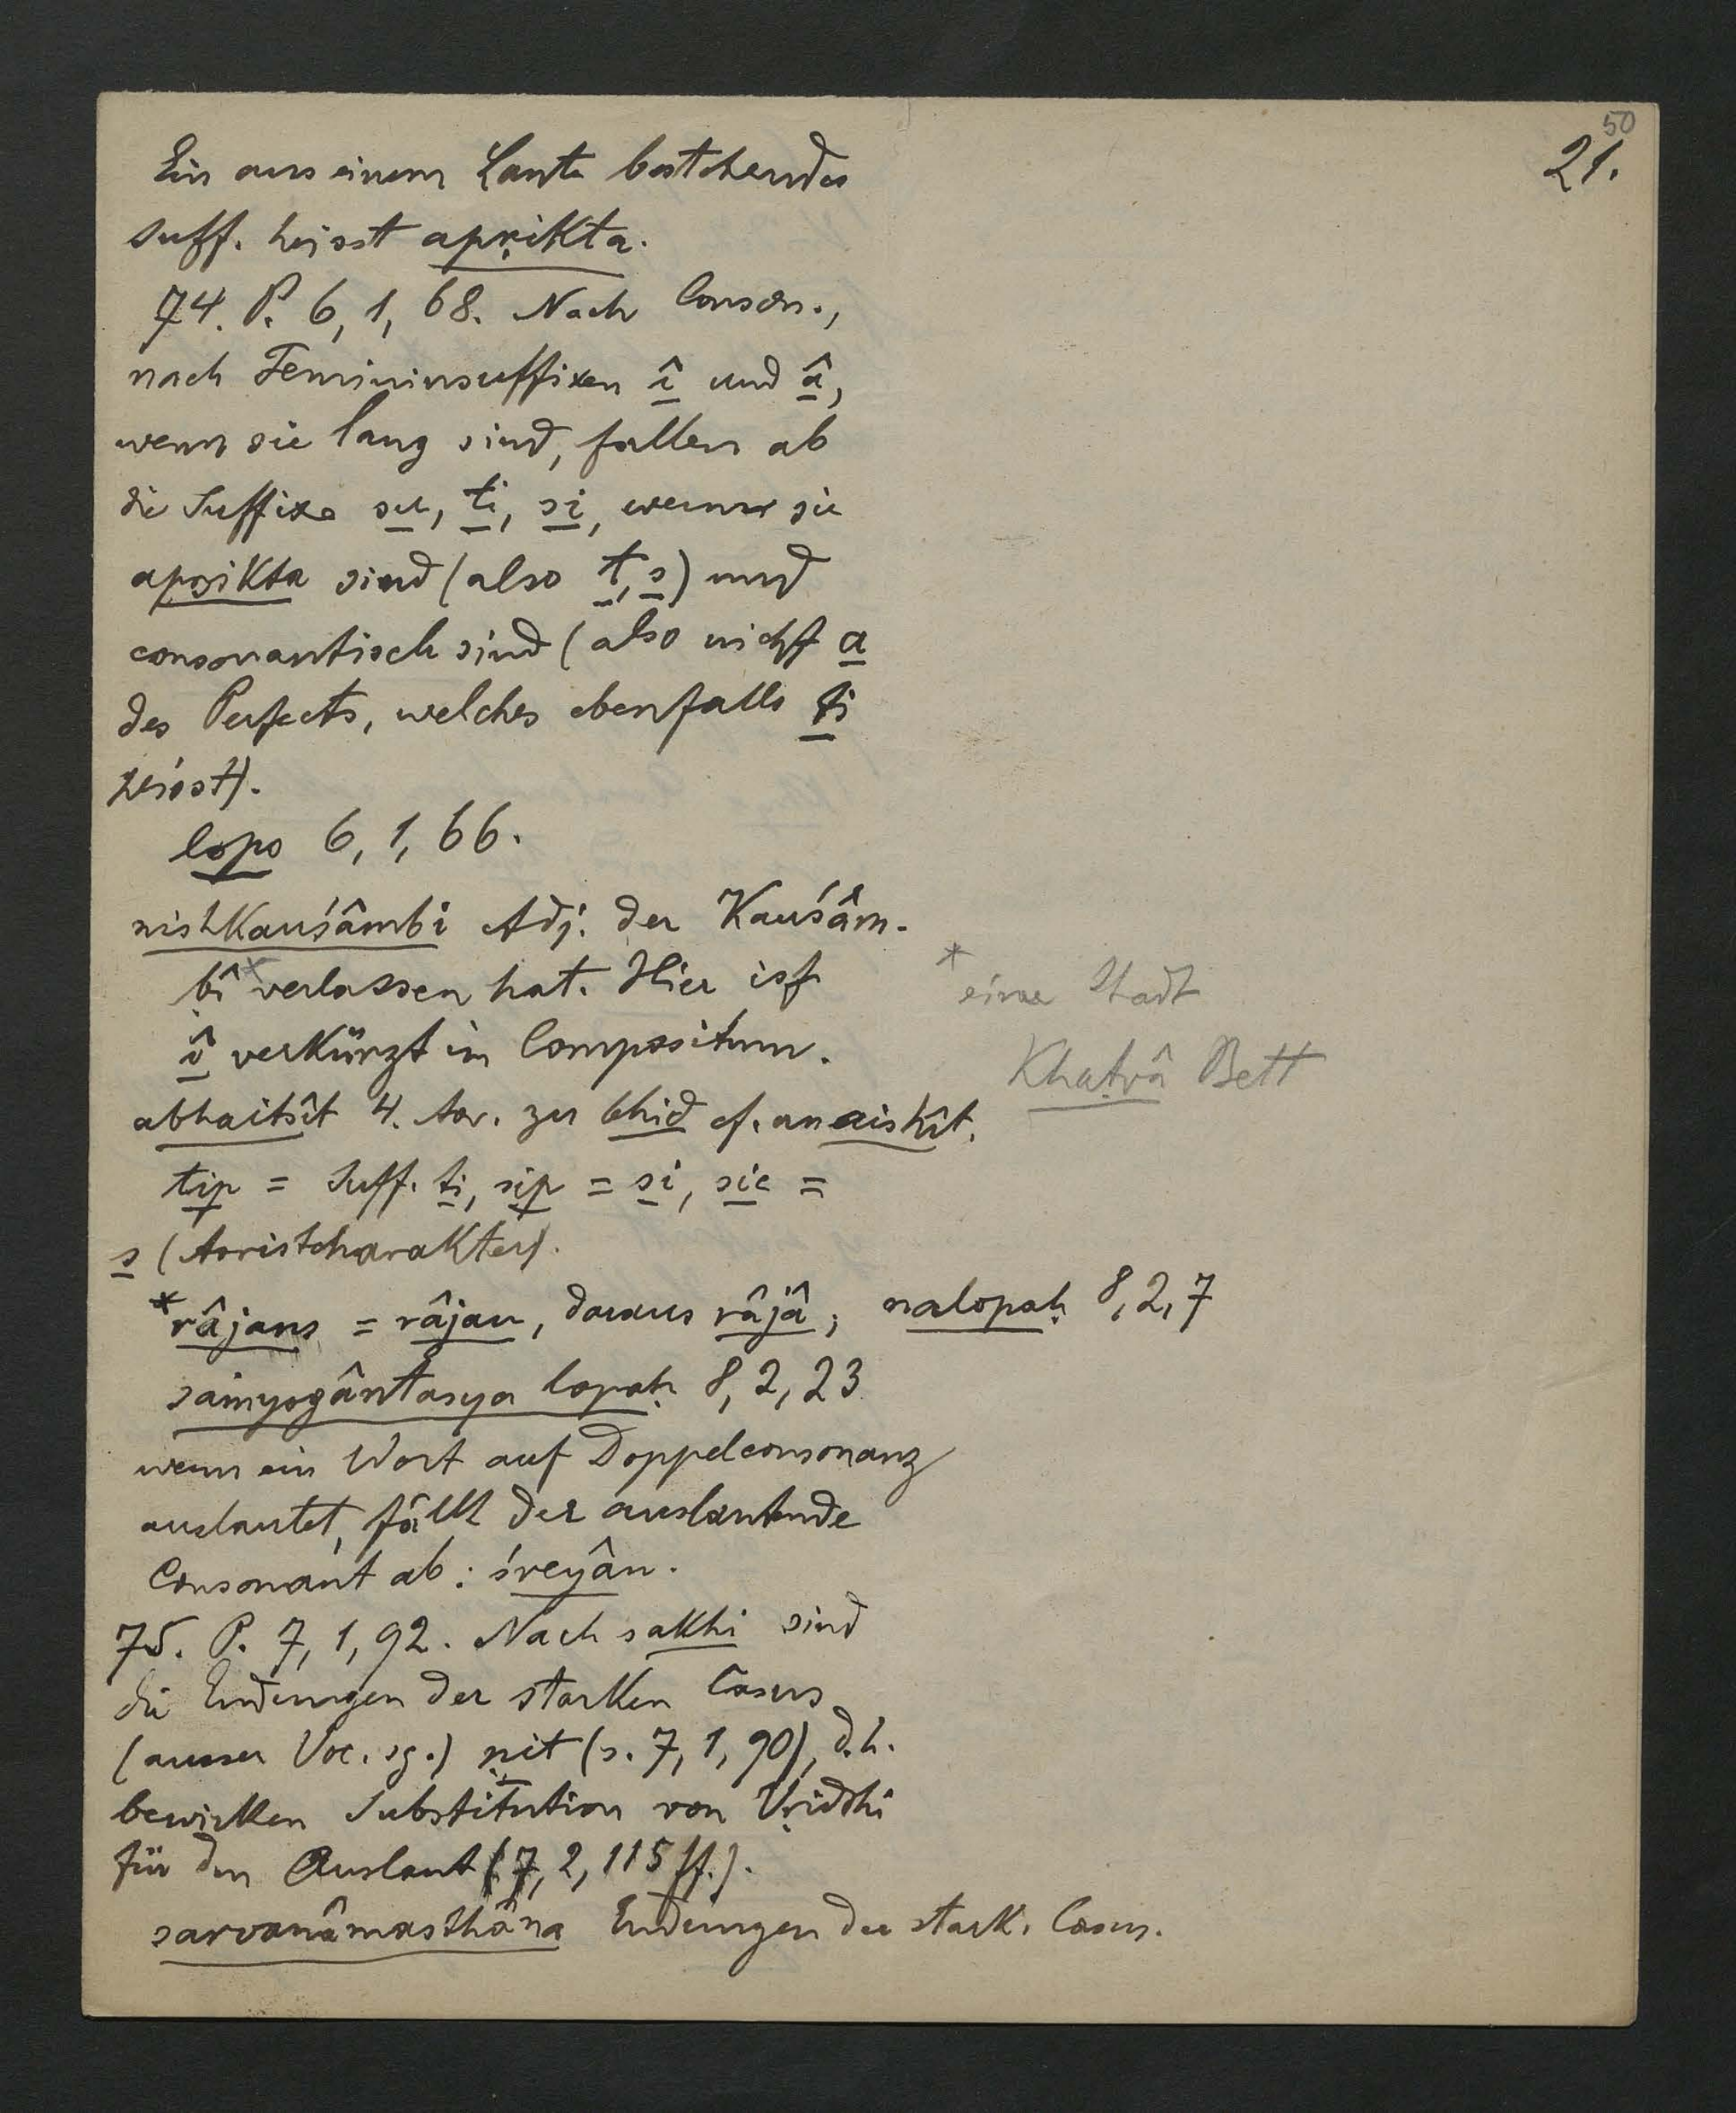 50
21.
Ein aus einem Laute bestehendes
Suff. heisst apṛikta.
74. P. 6, 1, 68. Nach Conson.,
nach Femininsuffixen î und â,
wenn sie lang sind, fallen ab
die Suffixe su, ti, si, wenn sie
apṛikta sind (also t, s) und
consonantisch sind (also nicht a
des Perfects, welches ebenfalls ti
heisst).
lopo 6, 1, 66.
nishkauśâmbi Adj. der Kauśâm-
bî* verlassen hat. Hier ist
î verkürzt im Compositum.
* eine Stadt
Khaṭvâ Bett
abhaitsît 4. Aor. zu bhid cf. anaishît.
tip = Suff. ti, sip = si, sic =
s (Aoristcharakter).
*râjans = râjan, daraus râjâ; nalopaḥ 8, 2, 7
saṁyogântasya lopaḥ 8, 2, 23
wenn ein Wort auf Doppelconsonanz
auslautet, fällt der auslautende
Consonant ab: śreyân.
75. P. 7, 1, 92. Nach sakhi sind
die Endungen der starken Casus
(ausser Voc. sg.) ṇit (s. 7, 1, 90), d.h.
bewirken Substitution von Vṛiddhi
für den Auslaut (7, 2, 115 ff.).
sarvanâmasthâna Endungen der stark. Casus.